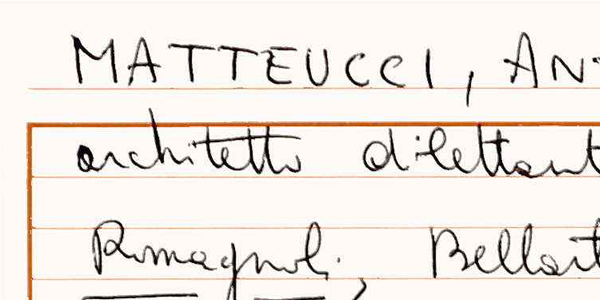 MATTEUCCI, AN
architetto dilettant
Romagnoli,